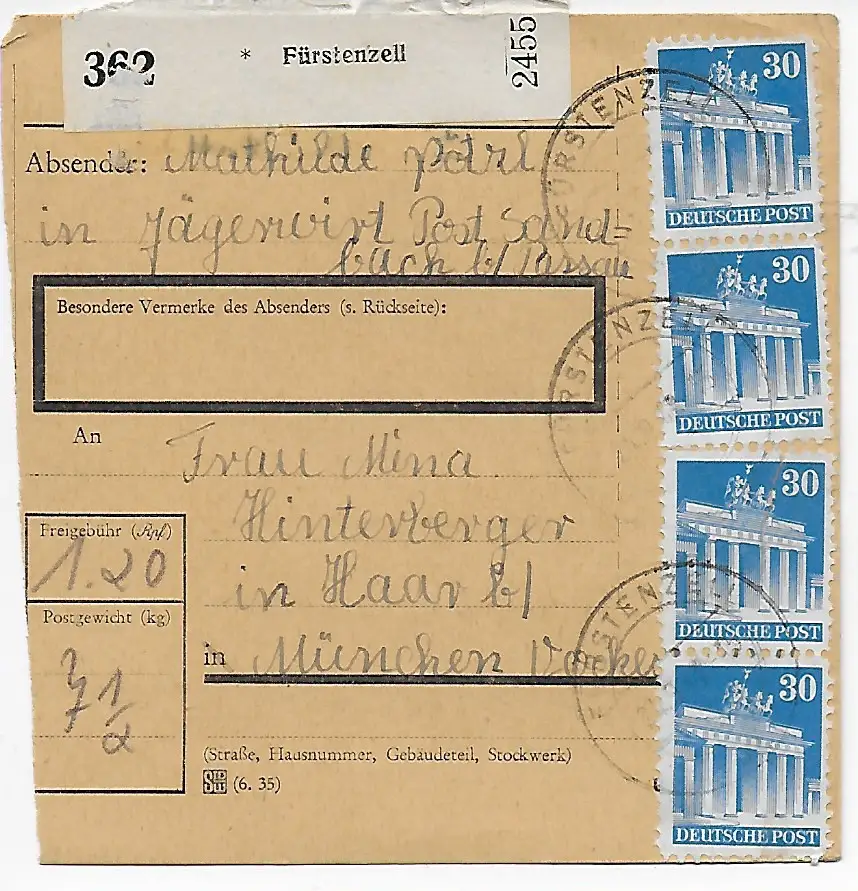 362 * Fürstenzell 2455
Absender: Mathilde Pötzl
in Jägerwirt Post Sand=
bach b/ Passau
Besondere Vermerke des Absenders (s. Rückseite):
An
Frau Mina
Hinterberger
in Haar b/
in München
Freigebühr (Rpf)
1.20
Postgewicht (kg)
7 1/2
(Straße, Hausnummer, Gebäudeteil, Stockwerk)
(6. 35)
30
DEUTSCHE POST
30
DEUTSCHE POST
30
DEUTSCHE POST
30
DEUTSCHE POST
FÜRSTENZELL
FÜRSTENZELL
FÜRSTENZELL